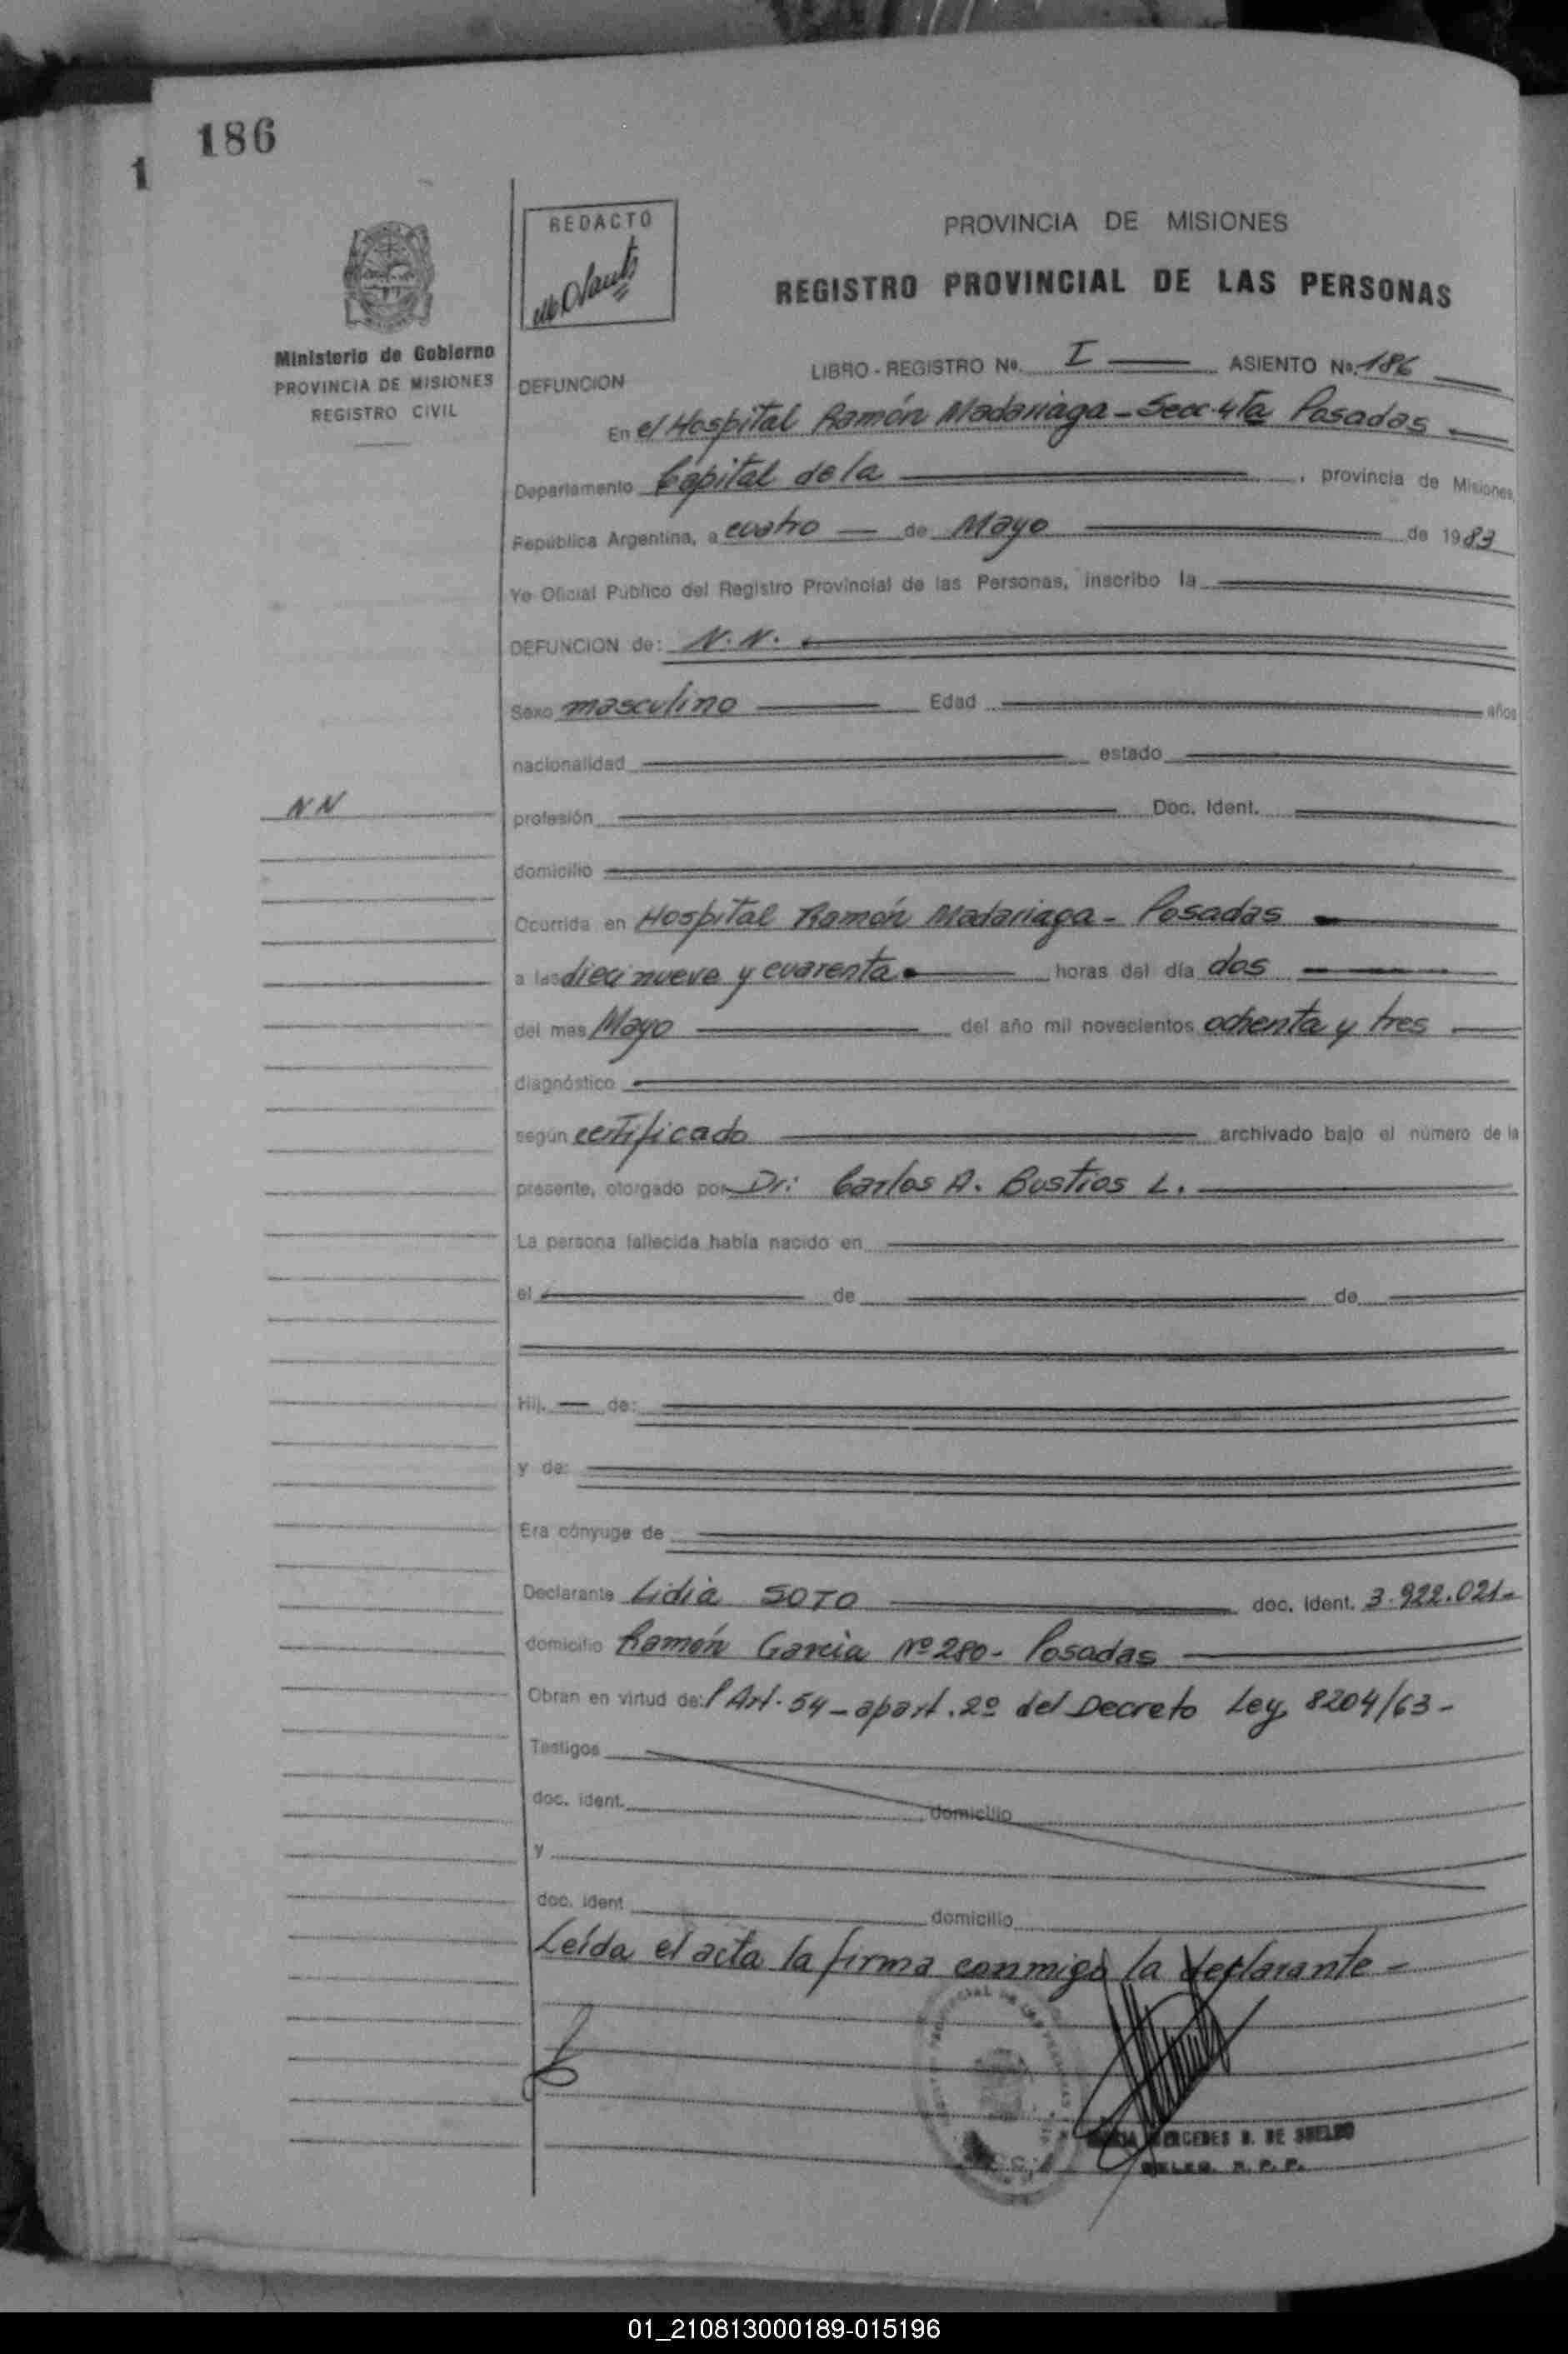 186
1
REDACTO
PROVINCIA DE MISIONES
REGISTRO PROVINCIAL DE LAS PERSONAS
Ministerio de Gobierno
PROVINCIA DE MISIONES
REGISTRO CIVIL
LIBRO - REGISTRO Nº. I ASIENTO Nº. 186
DEFUNCION
En el Hospital Ramón Madariaga - Secc. 4ta Posadas
Departamento Capital de la , provincia de Misiones,
República Argentina, a cuatro de Mayo de 1983
Yo Oficial Público del Registro Provincial de las Personas, inscribo la
DEFUNCION de: N.N.
Sexo masculino Edad años
nacionalidad estado
NN
profesión Doc. Ident.
domicilio
Ocurrida en Hospital Ramón Madariaga - Posadas
a las dieci nueve y cuarenta horas del día dos
del mes Mayo del año mil novecientos ochenta y tres
diagnóstico
según certificado archivado bajo el número de la
presente, otorgado por Dr: Carlos A. Bustios L.
La persona fallecida había nacido en
el de de
Hij. de:
y de:
Era cónyuge de
Declarante Lidia SOTO doc. ident. 3.922.021-
domicilio Ramón Garcia Nº 280- Posadas
Obran en virtud de: l'Art. 54 - apart. 2º del Decreto Ley 8204/63-
Testigos
doc. ident. domicilio
y
doc. ident domicilio
Leída el acta la firma conmigo la declarante -
MERCEDES DE
R. P. P.
01_210813000189-015196